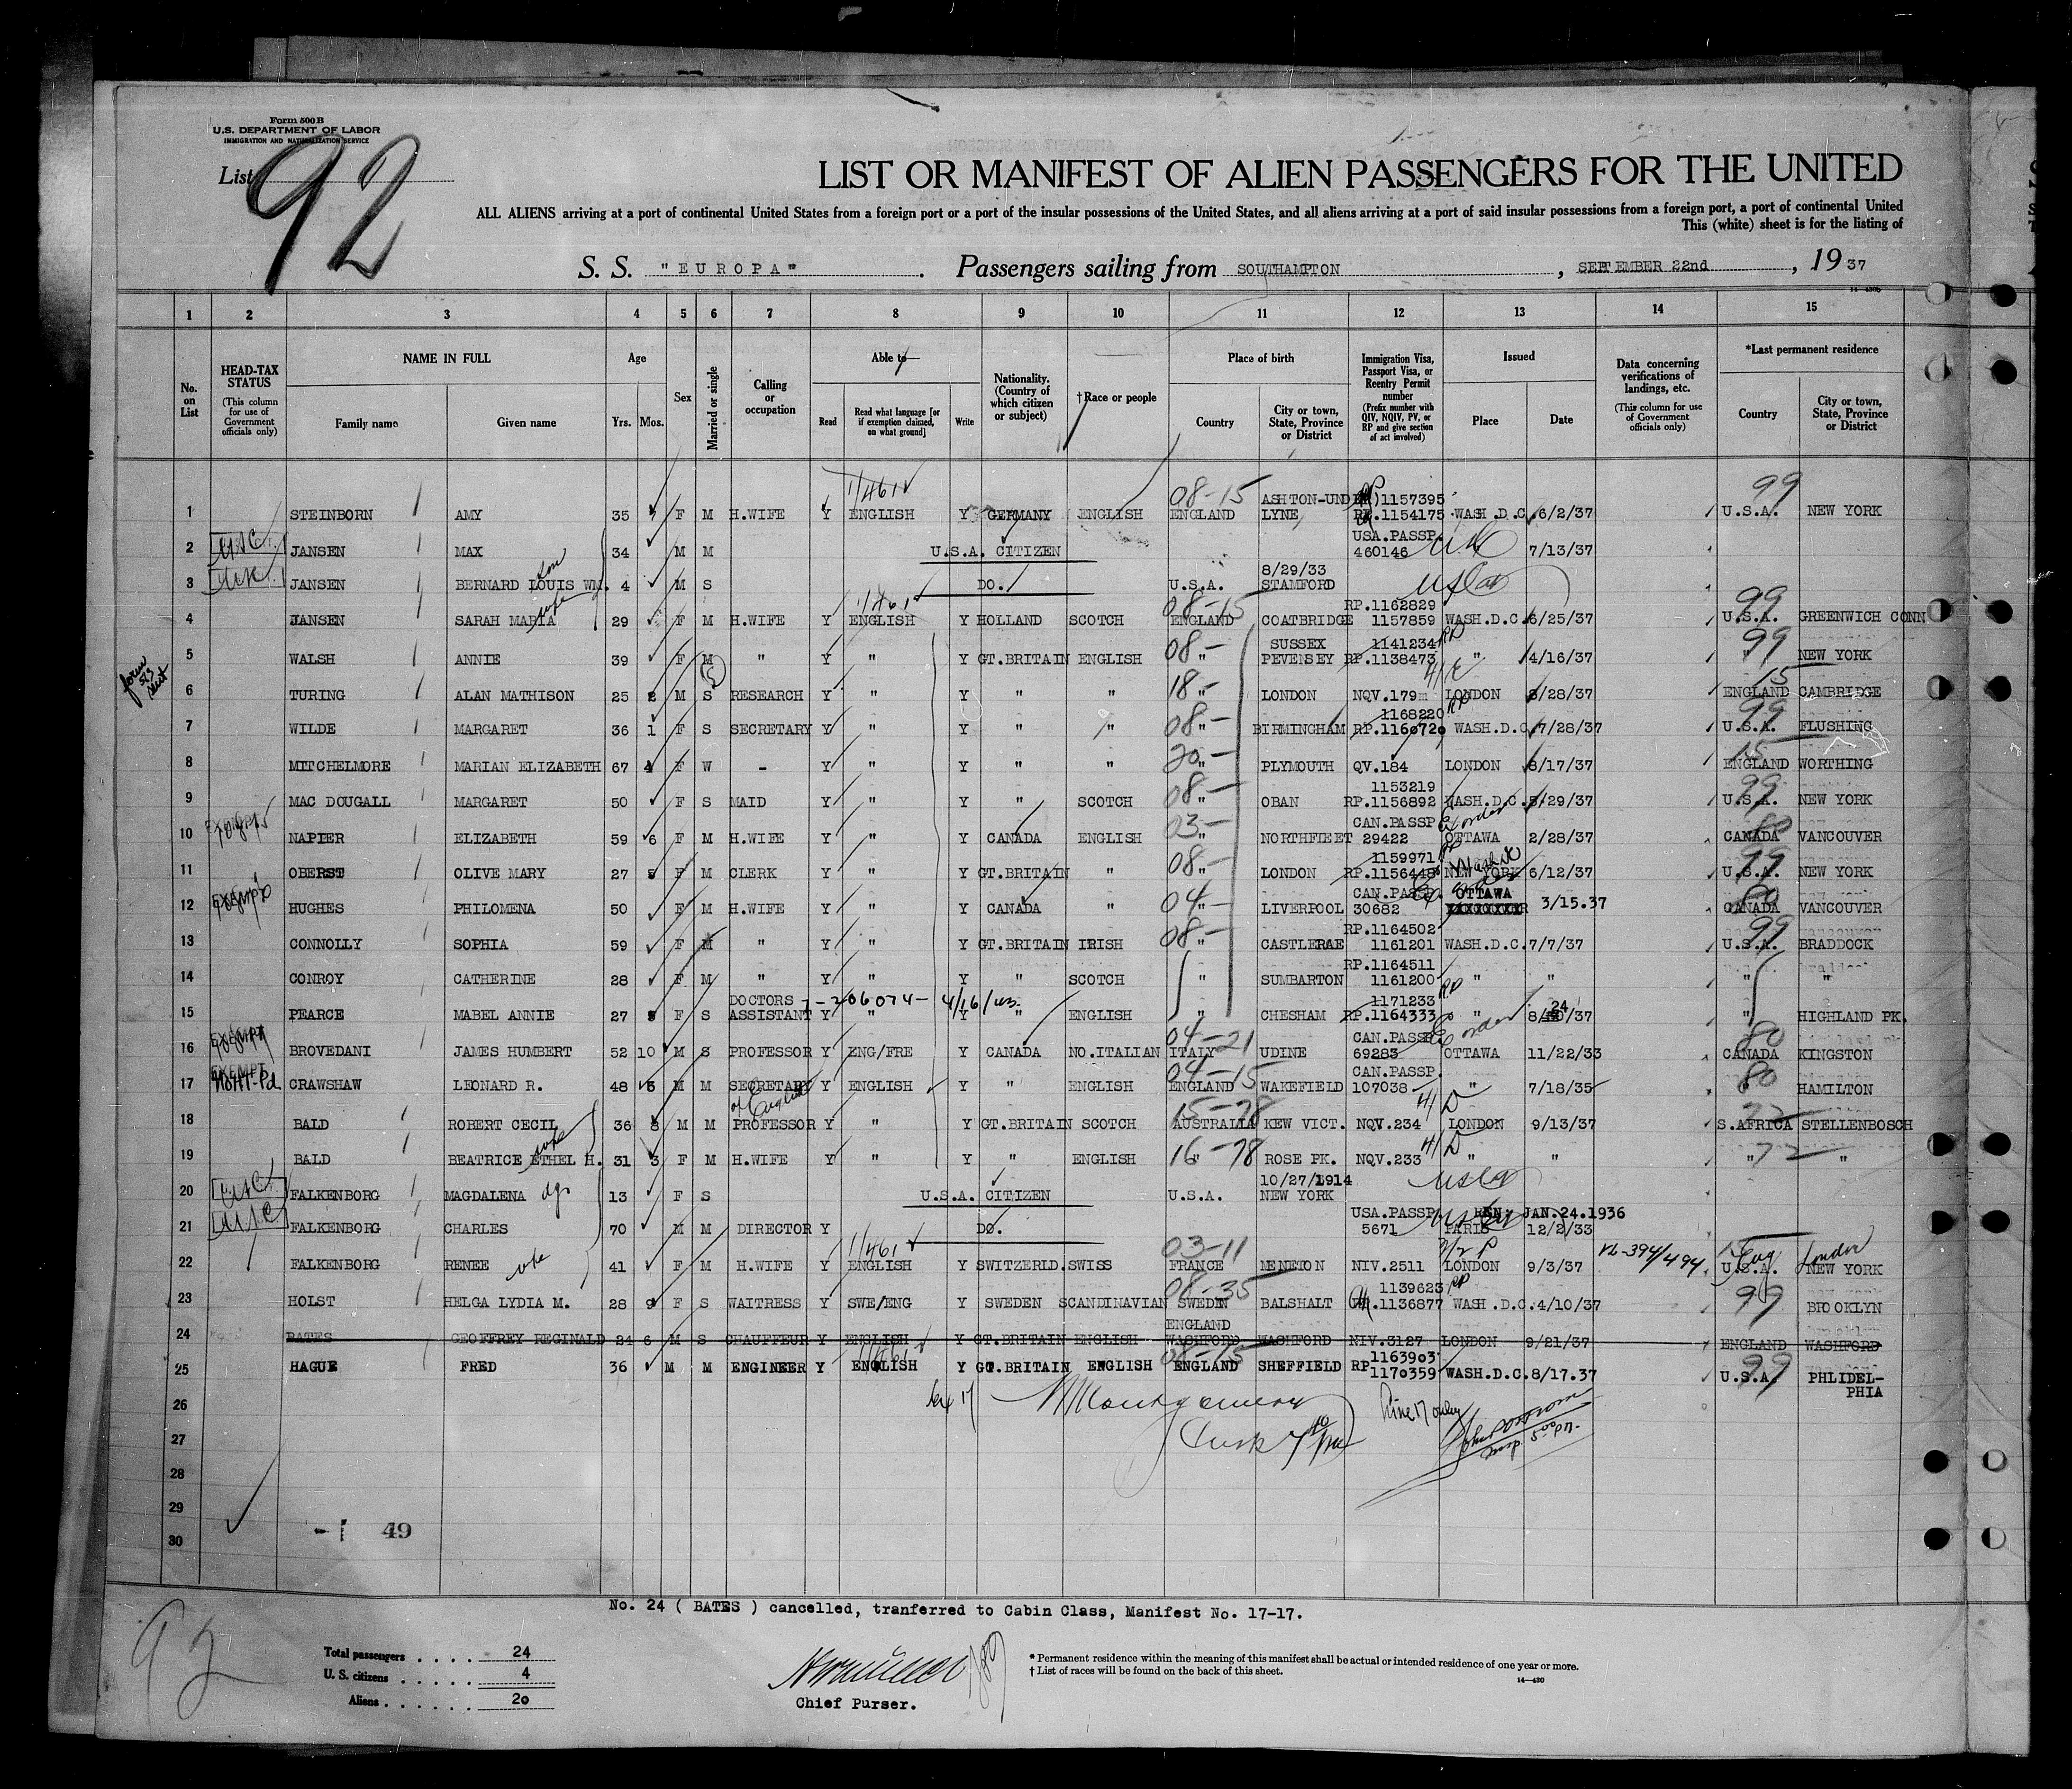 Form 500 B
U.S. DEPARTMENT OF LABOR
IMMIGRATION AND NATURALIZATION SERVICE
List 92
LIST OR MANIFEST OF ALIEN PASSENGERS FOR THE UNITED
ALL ALIENS arriving at a port of continental United States from a foreign port or a port of the insular possessions of the United States, and all aliens arriving at a port of said insular possessions from a foreign port, a port of continental United
This (white) sheet is for the listing of
S. S. "EUROPA" . Passengers sailing from SOUTHAMPTON , SEPTEMBER 22nd , 19 37
1 2 3 4 5 6 7 8 9 10 11 12 13 14 15
No. on List
HEAD-TAX STATUS
(This column for use of Government officials only)
NAME IN FULL
Family name
Given name
Age
Yrs. Mos.
Sex
Married or single
Calling or occupation
Able to—
Read
Read what language [or if exemption claimed, on what ground]
Write
Nationality. (Country of which citizen or subject)
†Race or people
Place of birth
Country
City or town, State, Province or District
Immigration Visa, Passport Visa, or Reentry Permit number
(Prefix number with QIV, NQIV, PV, or RP and give section of act involved)
Issued
Place
Date
Data concerning verifications of landings, etc.
(This column for use of Government officials only)
*Last permanent residence
Country
City or town, State, Province or District
1/461 08-15 ASHTON-UNDER) 1157395 99
1 STEINBORN AMY 35 F M H.WIFE Y ENGLISH Y GERMANY ENGLISH ENGLAND LYNE RP.1154175 WASH.D.C. 6/2/37 U.S.A. NEW YORK
USC USA.PASSP.
2 JANSEN MAX 34 M M U.S.A. CITIZEN 460146 7/13/37
son 8/29/33
3 JANSEN BERNARD LOUIS WM. 4 M S DO. U.S.A. STAMFORD
wife 1/461 08-15 RP.1162829 99
4 JANSEN SARAH MARIA 29 F M H.WIFE Y ENGLISH Y HOLLAND SCOTCH ENGLAND COATBRIDGE 1157859 WASH.D.C. 6/25/37 U.S.A. GREENWICH CONN
08- SUSSEX 1141234 RP 99
5 WALSH ANNIE 39 F M " Y " Y GT.BRITAIN ENGLISH " PEVENSEY RP.1138473 " 4/16/37 NEW YORK
form 18- 15
6 TURING ALAN MATHISON 25 2 M S RESEARCH Y " Y " " " LONDON NQV.179 LONDON 8/28/37 ENGLAND CAMBRIDGE
08- 1168220 RP 99
7 WILDE MARGARET 36 1 F S SECRETARY Y " Y " " " BIRMINGHAM RP.1160720 WASH.D.C. 7/28/37 U.S.A. FLUSHING
20- 15
8 MITCHELMORE MARIAN ELIZABETH 67 4 F W - Y " Y " " " PLYMOUTH QV.184 LONDON 8/17/37 ENGLAND WORTHING
08- 1153219 99
9 MAC DOUGALL MARGARET 50 F S MAID Y " Y " SCOTCH " OBAN RP.1156892 WASH.D.C. 5/29/37 U.S.A. NEW YORK
EXEMPT 03- CAN.PASSP. 80
10 NAPIER ELIZABETH 59 6 F M H.WIFE Y " Y CANADA ENGLISH " NORTHFLEET 29422 OTTAWA 2/28/37 CANADA VANCOUVER
08- 1159971 RP Wash DC 99
11 OBERST OLIVE MARY 27 5 F M CLERK Y " Y GT.BRITAIN " " LONDON RP.1156445 NEW YORK 6/12/37 U.S.A. NEW YORK
EXEMPT 04- CAN.PASSP. OTTAWA 80
12 HUGHES PHILOMENA 50 F M H.WIFE Y " Y CANADA " " LIVERPOOL 30682 3/15.37 CANADA VANCOUVER
08- RP.1164502 99
13 CONNOLLY SOPHIA 59 F M " Y " Y GT.BRITAIN IRISH " CASTLERAE 1161201 WASH.D.C. 7/7/37 U.S.A. BRADDOCK
RP.1164511
14 CONROY CATHERINE 28 F M " Y " Y " SCOTCH " SUMBARTON 1161200 " " " "
DOCTORS 7-206074-4/16/43 1171233 RP 24
15 PEARCE MABEL ANNIE 27 F S ASSISTANT Y " Y " ENGLISH " CHESHAM RP.1164333 " 8/ /37 " HIGHLAND PK.
EXEMPT 04-21 CAN.PASSP. 80
16 BROVEDANI JAMES HUMBERT 52 10 M S PROFESSOR Y ENG/FRE Y CANADA NO.ITALIAN ITALY UDINE 69283 OTTAWA 11/22/33 CANADA KINGSTON
EXEMPT 04-15 CAN.PASSP. 80
17 CRAWSHAW LEONARD R. 48 M M SECRETARY Y ENGLISH Y " ENGLISH ENGLAND WAKEFIELD 107038 " 7/18/35 " HAMILTON
of English 15-78
18 BALD ROBERT CECIL 36 M M PROFESSOR Y " Y GT.BRITAIN SCOTCH AUSTRALIA KEW VICT. NQV.234 LONDON 9/13/37 S.AFRICA STELLENBOSCH
wife 16-78
19 BALD BEATRICE ETHEL H. 31 3 F M H.WIFE Y " Y " ENGLISH " ROSE PK. NQV.233 " " " "
10/27/1914
20 FALKENBORG MAGDALENA 13 F S U.S.A. CITIZEN U.S.A. NEW YORK
USA.PASSP. REN. JAN.24.1936
21 FALKENBORG CHARLES 70 M M DIRECTOR Y DO. 5671 PARIS 12/2/33
1/461 03-11 3/2 P VL-394/494 Eng London
22 FALKENBORG RENEE wife 41 F M H.WIFE Y ENGLISH Y SWITZERLD. SWISS FRANCE MENETON NIV.2511 LONDON 9/3/37 U.S.A. NEW YORK
08-35 1139623 RP 99
23 HOLST HELGA LYDIA M. 28 9 F S WAITRESS Y SWE/ENG Y SWEDEN SCANDINAVIAN SWEDEN BALSHALT 1136877 WASH.D.C. 4/10/37 BROOKLYN
ENGLAND
24 BATES GEOFFREY REGINALD 24 6 M S CHAUFFEUR Y ENGLISH Y GT.BRITAIN ENGLISH WASHFORD WASHFORD NIV.3127 LONDON 9/21/37 ENGLAND WASHFORD
1/461 08-15 1163903 99
25 HAGUE FRED 36 M M ENGINEER Y ENGLISH Y GT.BRITAIN ENGLISH ENGLAND SHEFFIELD RP 1170359 WASH.D.C. 8/17.37 U.S.A. PHLIDEL-
PHIA
26 Montgomery
27
28
29
30 49
No. 24 ( BATES ) cancelled, tranferred to Cabin Class, Manifest No. 17-17.
92
Total passengers . . . . 24
U. S. citizens . . . . . 4
Aliens . . . . . . 20
Chief Purser.
* Permanent residence within the meaning of this manifest shall be actual or intended residence of one year or more.
† List of races will be found on the back of this sheet.
14—430